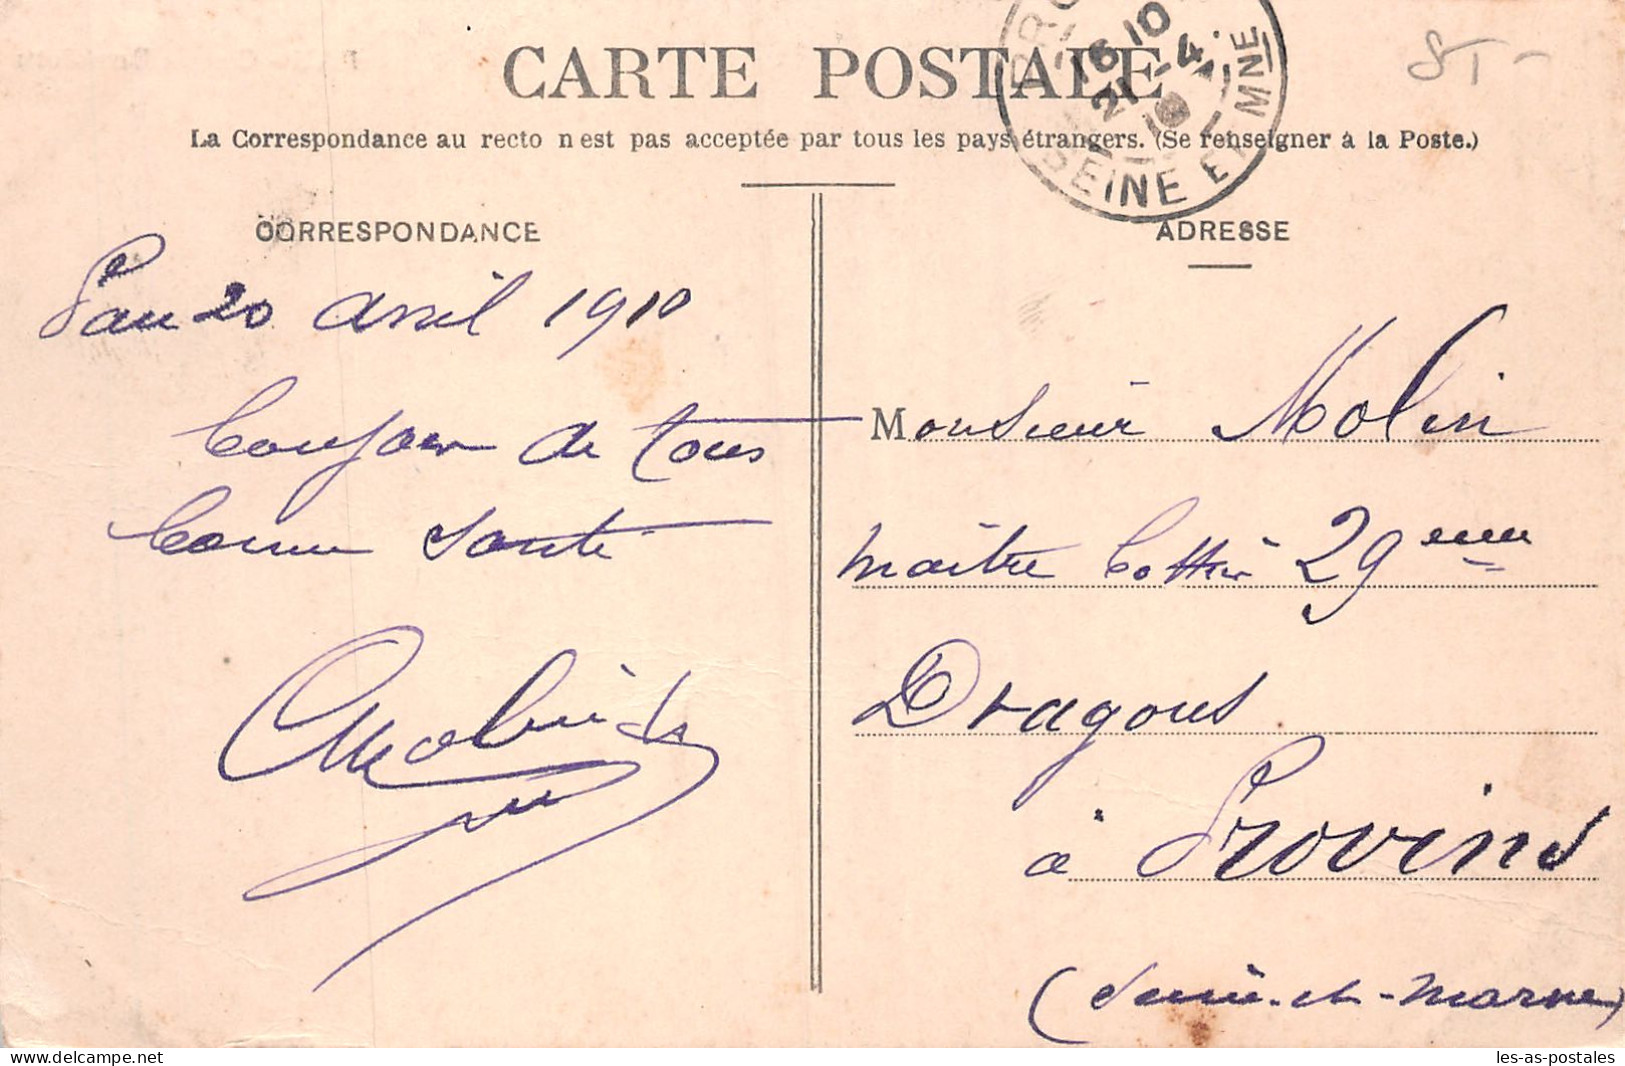 CARTE POSTALE
La Correspondance au recto n est pas acceptée par tous les pays étrangers. (Se renseigner à la Poste.)
PRO
16 10
21 -4
10
SEINE ET MNE
ST-
CORRESPONDANCE
Pau 20 avril 1910
Bonjour de tous
Bonne Santé
ADRESSE
Monsieur Molin
maître bottier 29eme
Dragons
à Provins
(Seine-et-Marne)
delcampe.net
les-as-postales